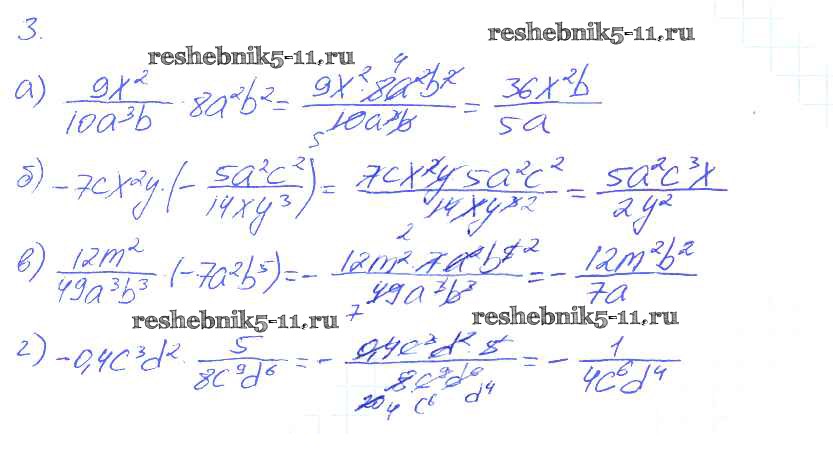 3.
reshebnik5-11.ru
reshebnik5-11.ru
а) 9x²/10a³b · 8a²b² = 9x² · 8a²b²/10a³b = 36x²b/5a
4
5
б) -7cx²y · (- 5a²c²/14xy³) = 7cx²y 5a²c²/14xy³ = 5a²c³x/2y²
2
2
в) 12m²/49a³b³ · (-7a²b⁵) = - 12m² · 7a²b⁵/49a³b³ = - 12m²b²/7a
2
7
reshebnik5-11.ru
reshebnik5-11.ru
г) -0,4c³d² · 5/8c⁹d⁶ = - 0,4c³d² · 5/8c⁹d⁶ = - 1/4c⁶d⁴
20 4 c⁶ d⁴